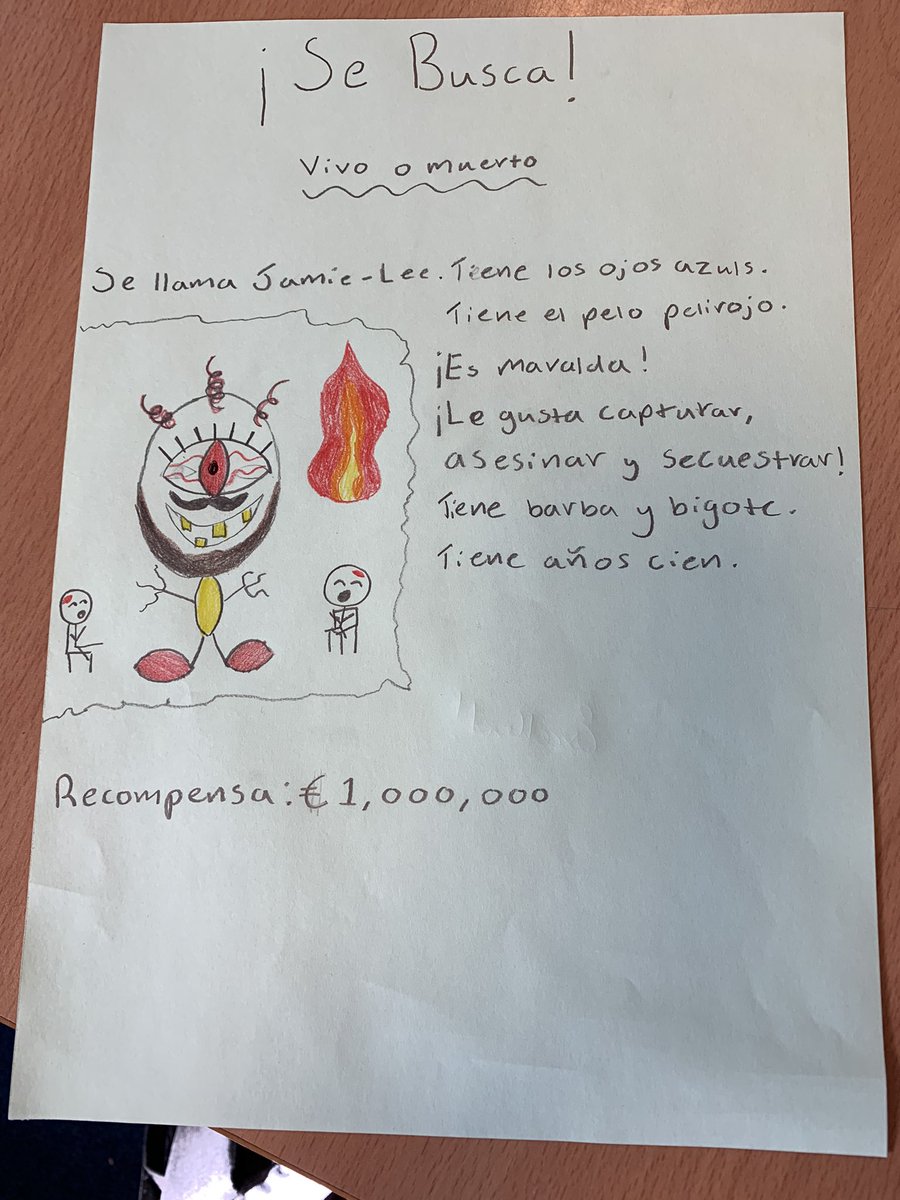 ¡Se Busca!
Vivo o muerto
Se llama Jamie-Lee. Tiene los ojos azuls.
Tiene el pelo pelirojo.
¡Es mavalda!
¡Le gusta capturar,
asesinar y secuestrar!
Tiene barba y bigote.
Tiene años cien.
Recompensa: € 1,000,000